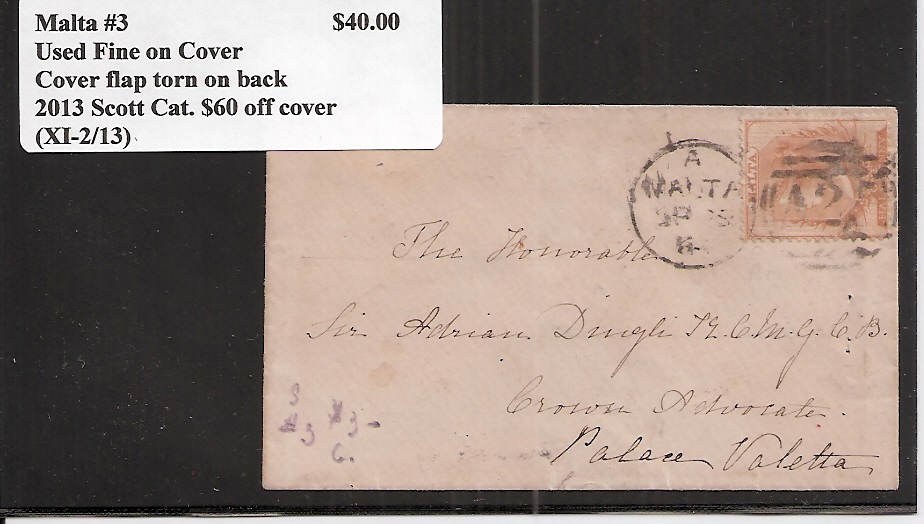 Malta #3 $40.00
Used Fine on Cover
Cover flap torn on back
2013 Scott Cat. $60 off cover
(XI-2/13)
A
MALTA
SP
MALTA
A 2
The Honorable
Sir Adrian Dingli K.C.M.G. C.B.
Crown Advocate.
Palace Valetta
S
#3 #3-
6.